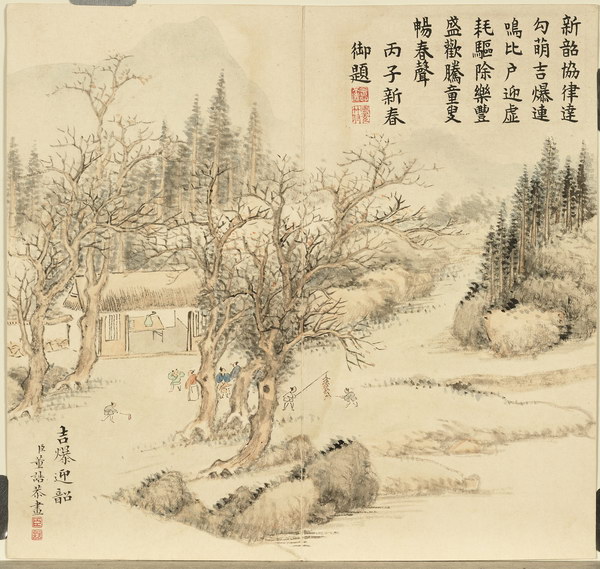 新韶協律達
勾萌吉爆連
鳴比户迎虛
耗驅除樂豐
盛歡騰童叟
暢春聲
丙子新春
御題
吉爆迎韶
臣董誥恭畫